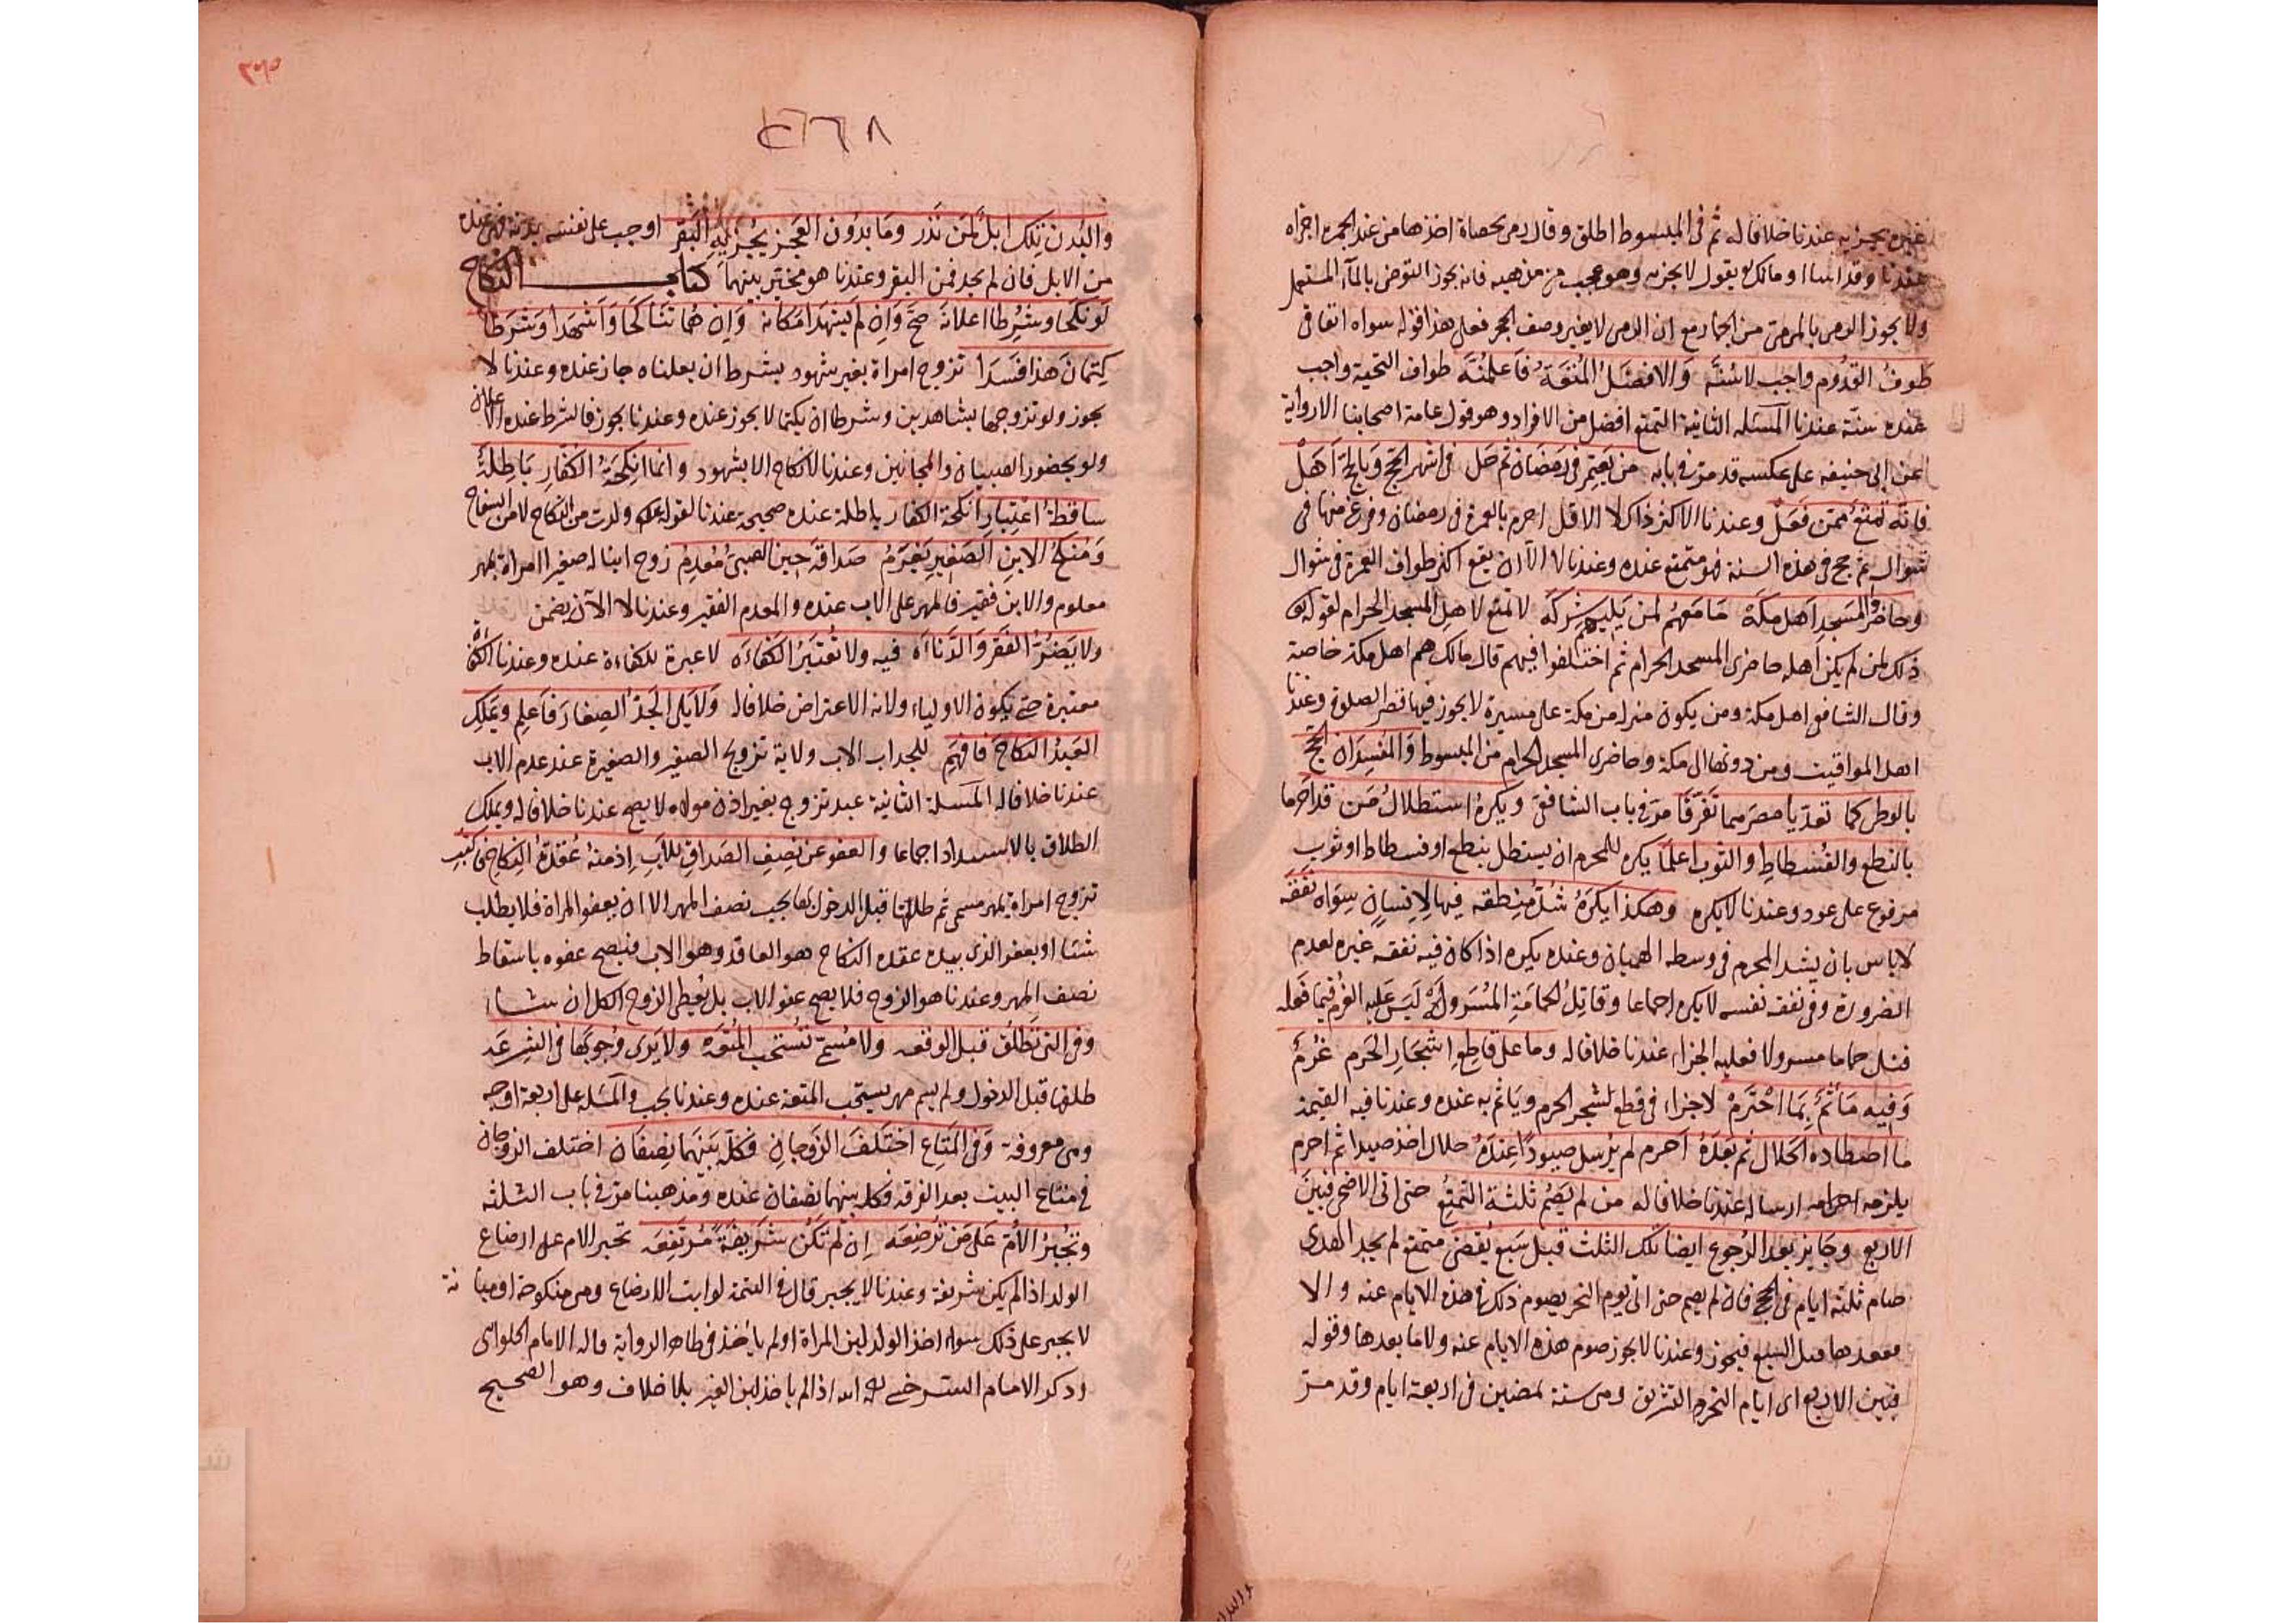 غيره يجزيه عندنا خلافا له ثم في المبسوط اطلق وقال رمى بحصاة اخذها من عند الجمرة اجزاه
عندنا وقد اسا ومالك يقول لا يجزيه وهو عجيب من مذهبه فانه يجوز التوضى بالمآ المستعمل
ولا يجوز الرمى بالمرمى من الجمار مع ان الرمى لا يغير وصف الحجر فعلى هذا قوله سواه اتفاقى
طوف القدوم واجب لا سنة والافضل المتعة فاعلمنه طواف التحية واجب
عنده سنة عندنا المسئله الثانية التمتع افضل من الافراد وهو قول عامة اصحابنا الا رواية
عن ابى حنيفه على عكسه قد مرّ فى بابه من يعتمر فى رمضان ثم حل فى اشهر الحج وبالحج اهل
فانه تمتع ممن فعل وعندنا الاكثر ذاك لا الاقل احرم بالعمرة فى رمضان وفرغ منها فى
شوال ثم حج فى هذه السنة فهو متمتع عنده وعندنا لا الا ان يقع اكثر طواف العمرة فى شوال
وحاضروا المسجد اهل مكة ما معهم لمن يليهم شركه لا تمتع لاهل المسجد الحرام لقوله تع
ذلك لمن لم يكن اهله حاضرى المسجد الحرام ثم اختلفوا فيهم قال مالك هم اهل مكة خاصة
وقال الشافعى اهل مكة ومن يكون منزله من مكة على مسيرة لا يجوز فيها قصر الصلوة وعندنا
اهل المواقيت ومن دونها الى مكة وحاضرى المسجد الحرام من المبسوط والمفسدان الحج
بالوطى كما تعدّيا مصرهما تفرّقا مرّ فى باب الشافعى ويكره استظلال من قد احرما
بالنطع والفسطاط والثوب اعلما يكره للمحرم ان يستظل بنطع او فسطاط او ثوب
مرفوع على عود وعندنا لا يكره وهكذا يكره شد منطقه فيها لانسان سواه نفقه
لا باس بان يشد المحرم فى وسطه الهميان وعنده يكره اذا كان فيه نفقه غيره لعدم
الضرورة وفى نفقه نفسه لا يكره اجماعا وقاتل الحمامة المسروله ليس عليه الغرم فيما فعله
قتل حماما مسرولا فعليه الجزاء عندنا خلافا له وما على قاطع اشجار الحرم غرم
وفيه ماثم بما اخترم لا جزاء فى قطع شجر الحرم وياثم به عنده وعندنا فيه القيمة
ما اصطاده الحلال ثم بعده احرم لم يرسل صيودا عنده حلال اخذ صيدا ثم احرم
يلزمه ارساله عندنا خلافا له من لم يصم ثلثة التمتع حتى اتى الاضحى فبين
الاربع وجايز بعد الرجوع ايضا تلك الثلث قبل سبع يقضى متمتع لم يجد الهدى
صام ثلثة ايام فى الحج فان لم يصم حتى اتى يوم النحر يصوم ذلك فى هذه الايام عنه والا
فبعدها قبل السبع فيجوز وعندنا لا يجوز صوم هذه الايام عنه ولا ما بعدها وقوله
فبين الاربع اى ايام النحر والتشريق وهى ستة تمضين فى اربعة ايام وقد مرّ
٣٦٥
٢٦٦٨
والبدن تلك ابل لمن نذر وما بدون العجز يجزيه البقر اوجب على نفسه بدنة فهى عنده
من الابل فان لم يجد فمن البقر وعندنا هو مخير بينهما كتاب النكاح
لو نكحا وشرطا اعلانه صح وان لم يشهدا مكانه وان هما تناكحا واشهدا وشرطا
كتمان هذا فسدا تزوج امراة بغير شهود بشرط ان يعلناه جاز عنده وعندنا لا
يجوز ولو تزوجها بشاهدين وشرطا ان يكتما لا يجوز عنده وعندنا يجوز فالشرط عنده الاعلان
ولو بحضور الصبيان والمجانين وعندنا لا نكاح الا بشهود وانما انكحة الكفار باطلة
ساقطة اعتبار انكحة الكفار باطلة عنده صحيحة عندنا لقوله عم ولدت من النكاح لا من السفاح
ومنكح الابن الصغير يغرم صداقه حين الصبى معدم زوج ابنا له صغيرا امراة بمهر
معلوم والابن فقير فالمهر على الاب عنده والمعدم الفقير وعندنا لا الا ان يضمن
ولا يضر الفقر والدناءه فيه ولا تعتبر الكفاءه لا عبرة للكفاءة عنده وعندنا الكفاءة
معتبرة حتى يكون للاولياء ولاية الاعتراض خلافا له ولا يلى الجد الصغار فاعلم ويملك
العبد النكاح فافهم للجد اب الاب ولاية تزويج الصغير والصغيرة عند عدم الاب
عندنا خلافا له المسئلة الثانية عبد تزوج بغير اذن مولاه لا يصح عندنا خلافا له ويملك
الطلاق بالاستبداد اجماعا والعفو عن نصف الصداق للاب اذ منه عقدة النكاح فاكتب
تزوج امراة بمهر مسمى ثم طلقها قبل الدخول بها يجب نصف المهر الا ان يعفو المراة فلا يطلب
شئا او يعفو الذى بيده عقدة النكاح هو العاقد وهو الاب فيصح عفوه باسقاط
نصف المهر وعندنا هو الزوج فلا يصح عفو الاب بل يعطى الزوج الكل ان شاء
وفى التى تطلق قبل الوقعه ولا مسمى تستحب المتعه ولا يرى وجوبها فى الشرعه
طلقها قبل الدخول ولم يسم مهر يستحب المتعة عنده وعندنا يجب والمسئله على اربعة اوجه
وهى معروفة وفى المتاع اختلف الزوجان فكله بينهما نصفان اختلف الزوجان
فى متاع البيت بعد الفرقه فكله بينهما نصفان عنده ومذهبنا مرّ فى باب الثلثه
وتجبر الام على من ترضعه ان لم تكن شريفة مرتفعه تجبر الام على ارضاع
الولد اذا لم يكن شريفة وعندنا لا يجبر قال فى التتمة لو ابت الارضاع وهى منكوحة او مبانة
لا يجبر على ذلك سواء اخذ الولد لبن المراة او لم ياخذ فى ظاهر الرواية قاله الامام الحلوانى
وذكر الامام السرخسى انه اذا لم ياخذ لبن الغير بلا خلاف وهو الصحيح